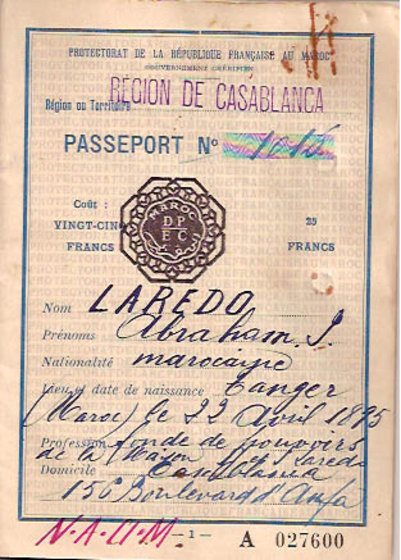 PROTECTORAT DE LA RÉPUBLIQUE FRANÇAISE AU MAROC
GOUVERNEMENT CHÉRIFIEN
Région ou Territoire RÉGION DE CASABLANCA
PASSEPORT N° 1016
Coût :
VINGT-CINQ
FRANCS
MAROC
D P
E C
25
FRANCS
Nom LAREDO
Prénoms Abraham, J.
Nationalité marocaine
Lieu et date de naissance Tanger
(Maroc) le 22 Avril 1895
Profession fondé de pouvoirs
de la Maison Laredo
Domicile Casablanca
156 Boulevard d'Anfa
N.A.U.M.
— 1 — A 027600